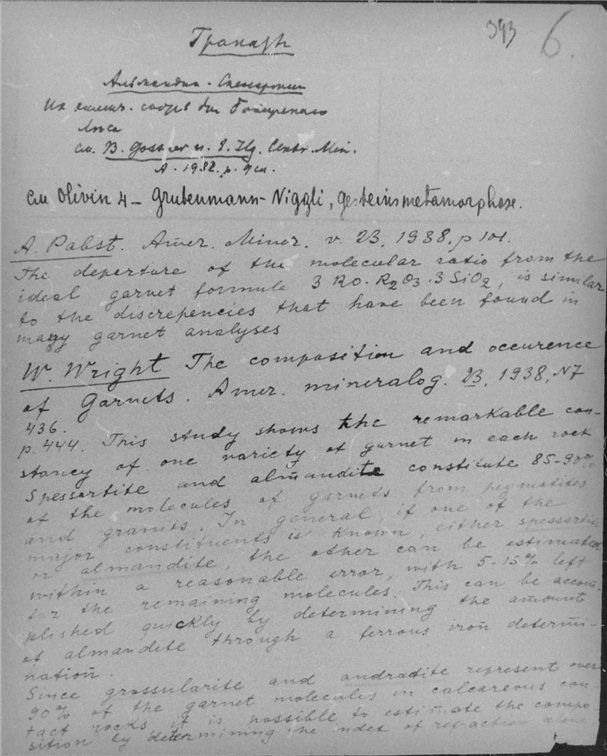 393 6.
Гранаты
Альмандин - Спессартин
Их химич. состав для
см. B. Gossner u. E. Ilg. Centr. Min.
A. 1932. p.
см Olivin 4 – Grubenmann-Niggli, gesteinsmetamorphose.
A. Pabst. Amer. Miner. v. 23, 1938. p 101.
The departure of the molecular ratio from the
ideal garnet formule 3 RO. R2O3. 3 SiO2, is similar
to the discrepencies that have been found in
many garnet analyses
W. Wright The composition and occurence
of Garnets. Amer. mineralog. 23, 1938, N7
436.
p. 444. This study shows the remarkable con-
stancy of one variety of garnet in each rock
Spessartite and almandite constitute 85-90%
of the molecules of garnets from pegmatites
and granits. In general if one of the
major constituents is known, either spessartite
or almandite, the other can be estimated
within a reasonable error, with 5-15% left
for the remaining molecules. This can be accom-
plished quickly by determining the amount
of almandite through a ferrous iron determi-
nation.
Since grossularite and andradite represent over
90% of the garnet molecules in calcareous con
tact rocks it is possible to estimate the compo-
sition by determining the index of refraction alone